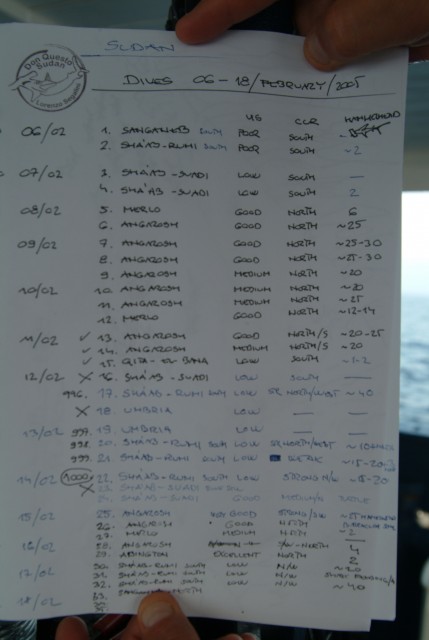 Don Questo
Sudan
Lorenzo
SUDAN
DIVES 06 - 18/FEBRUARY/2005
VIS CUR HAMMERHEAD
06/02 1. SANGANEB SOUTH POOR SOUTH -
2. SHA'AB-RUMI SOUTH POOR SOUTH -2
07/02 3. SHA'AB-SUADI LOW SOUTH —
4. SHA'AB-SUADI LOW SOUTH 2
08/02 5. MERLO GOOD NORTH 6
6. ANGAROSH GOOD NORTH ~25
09/02 7. ANGAROSH GOOD NORTH ~25-30
8. ANGAROSH GOOD NORTH ~25-30
9. ANGAROSH MEDIUM NORTH ~20
10/02 10. ANGAROSH MEDIUM NORTH ~20
11. ANGAROSH MEDIUM NORTH ~25
12. MERLO GOOD NORTH ~12-14
11/02 ✓ 13. ANGAROSH GOOD NORTH/S ~20-25
✓ 14. ANGAROSH MEDIUM NORTH/S ~20
✓ 15. GITA-EL BANA LOW SOUTH ~1-2
12/02 X 16. SHA'AB-SUADI LOW SOUTH —
996. 17. SHA'AB-RUMI SOUTH LOW NORTH/WEST ~40
X 18. UMBRIA LOW — —
13/02 997. 19. UMBRIA LOW — —
998. 20. SHA'AB-RUMI SOUTH LOW NORTH/WEST ~10
999. 21. SHA'AB-RUMI SOUTH LOW ~15-20
14/02 1000 22. SHA'AB-RUMI SOUTH LOW STRONG N/W ~15-20
X 23. SHA'AB-SUADI
24. SHA'AB-SUADI GOOD MEDIUM/
15/02 25. ANGAROSH GOOD STRONG/S/W ~25
26. ANGAROSH GOOD NORTH
27. MERLO MEDIUM NORTH ~2
16/02 28. ANGAROSH S/W-NORTH 4
29. ABINGTON EXCELLENT NORTH 2
17/02 30. SHA'AB-RUMI SOUTH LOW N/W ~20
31. SHA'AB-RUMI SOUTH LOW N/W
32. SHA'AB-RUMI SOUTH LOW N/W ~40
18/02 33. NORTH